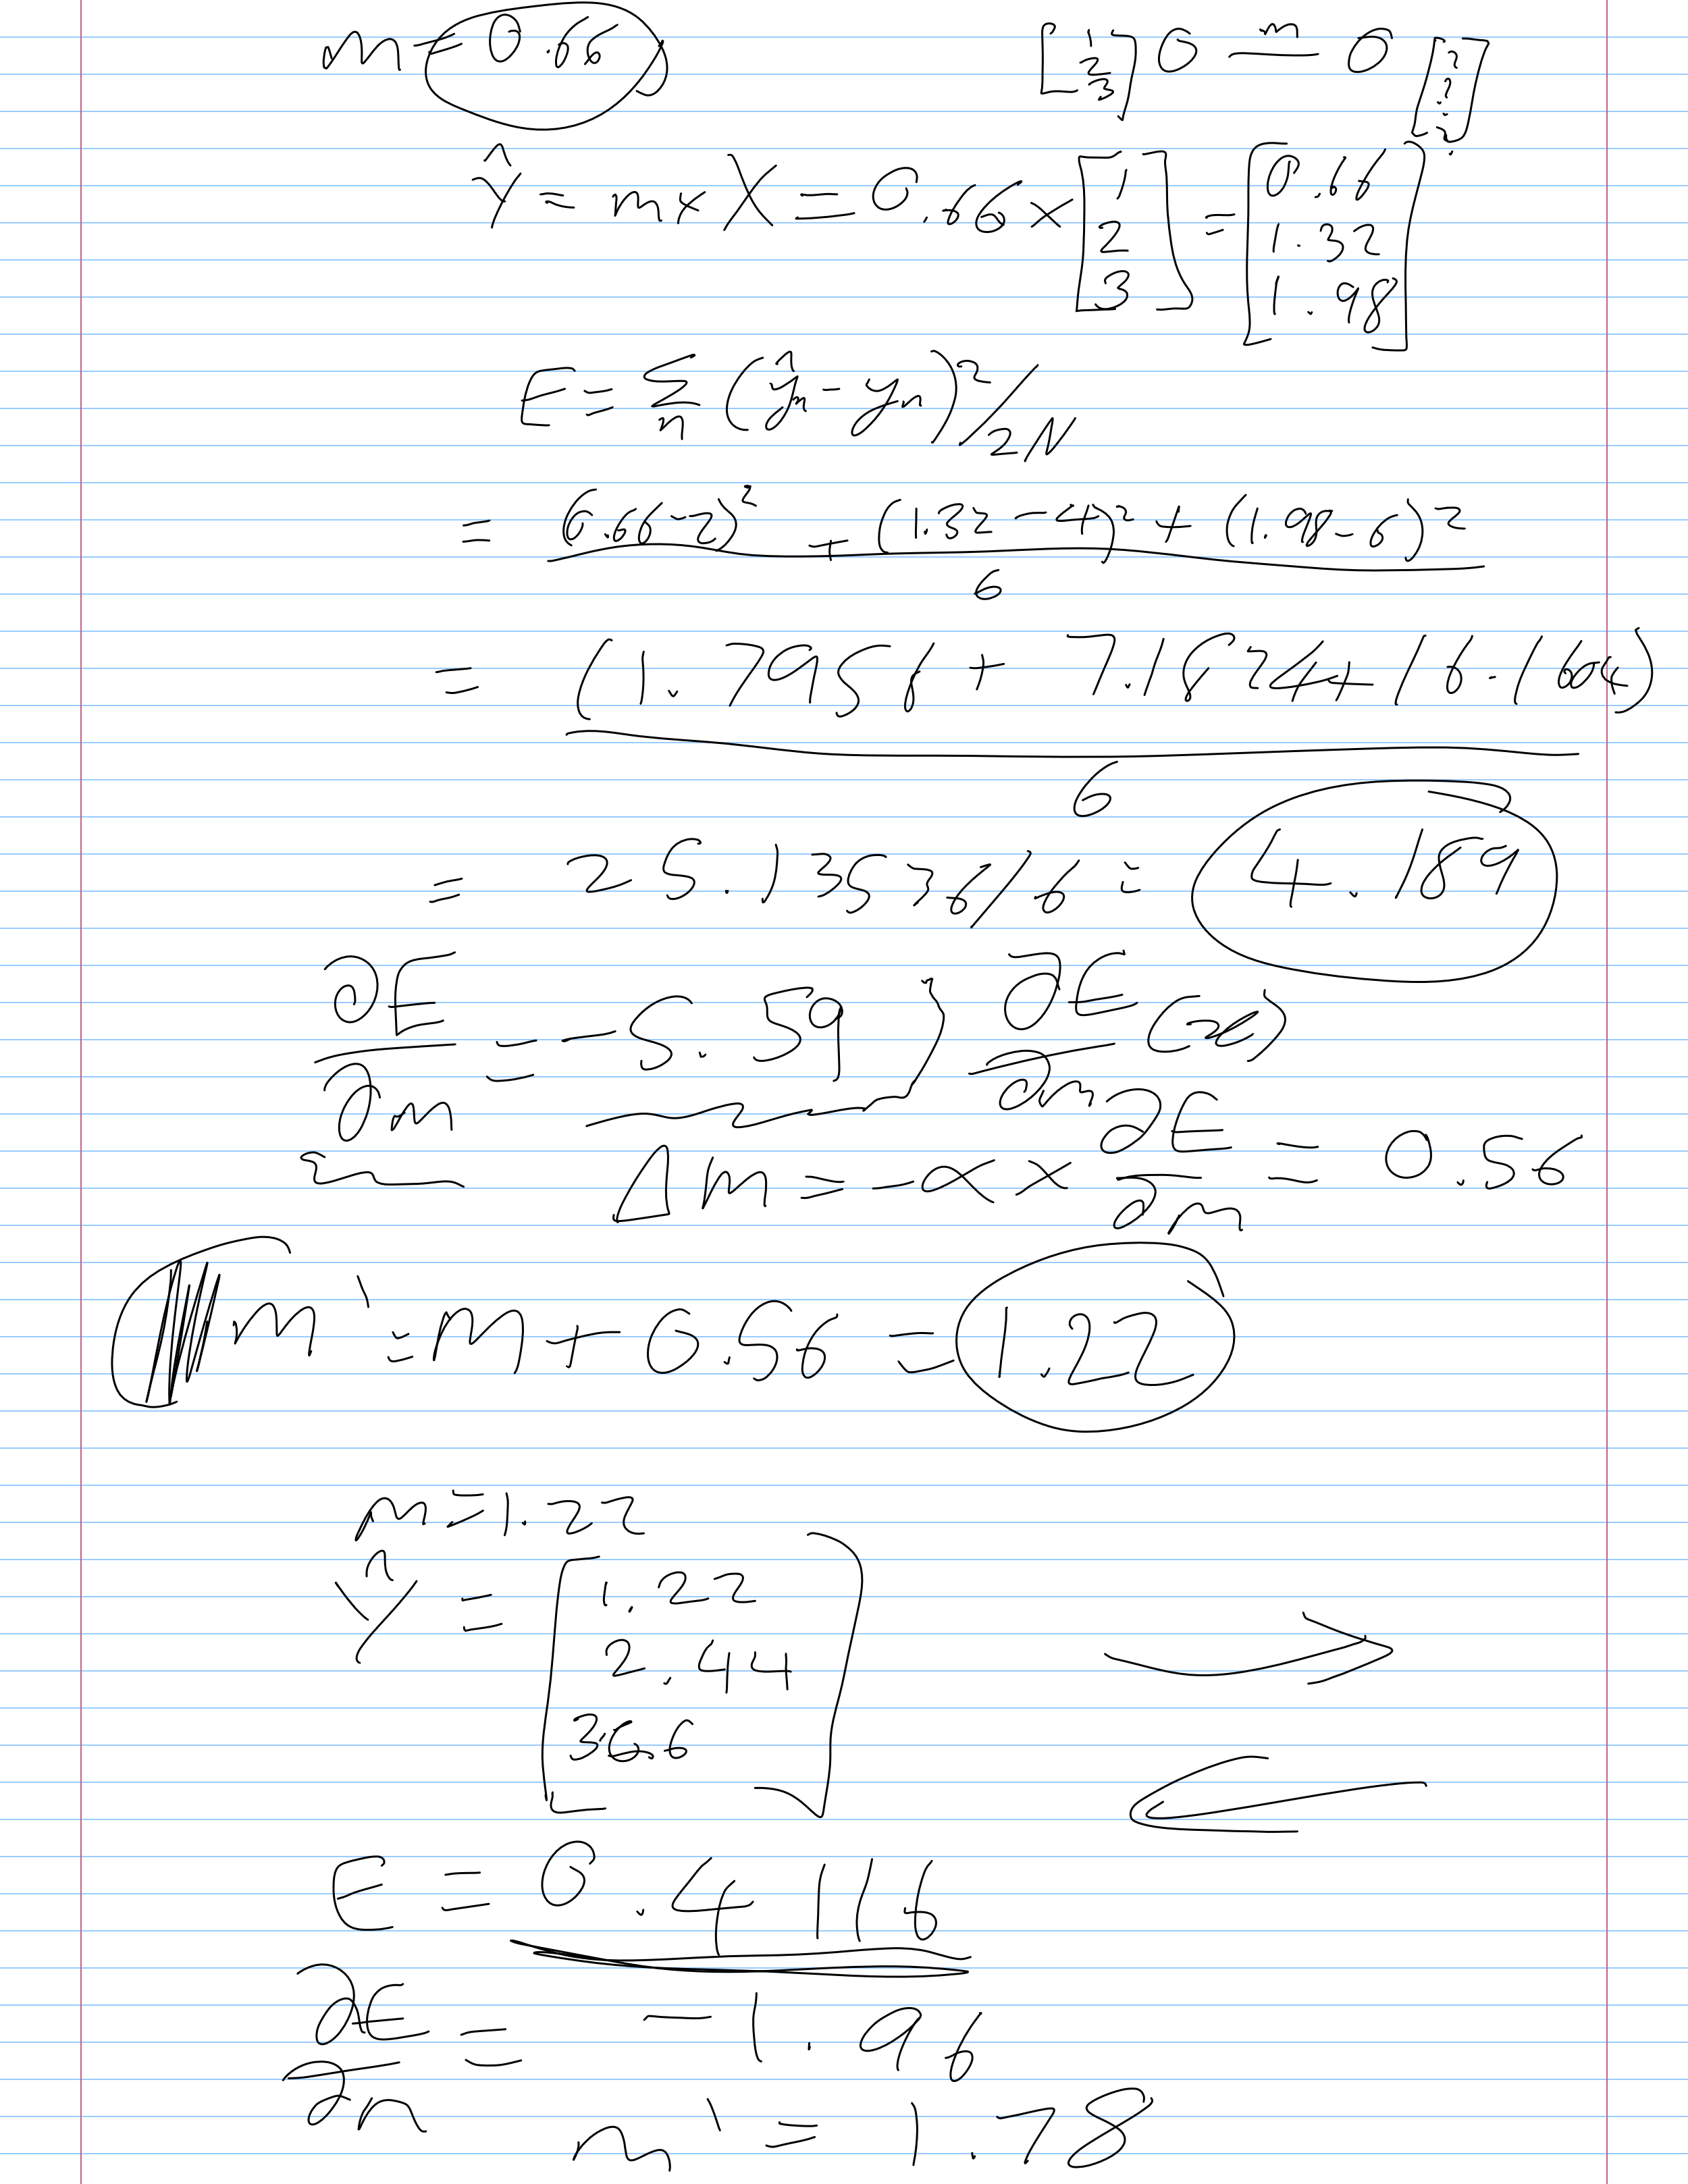 m = 0.66
[1 2 3] O —m— O [? ? ?]
Ŷ = m x X = 0.66 x [1 2 3] = [0.66 1.32 1.98]
E = Σn (ŷn - yn)² / 2N
= (0.66-2)² + (1.32-4)² + (1.98-6)² / 6
= (1.7956 + 7.1824 + 16.1604) / 6
= 25.13536/6 = 4.189
∂E/∂m = -5.59 } ∂E/∂m (x)
Δm = -α x ∂E/∂m = 0.56
m' = m + 0.56 = 1.22
m = 1.22
Ŷ = [1.22 2.44 3.66]
E = 0.4116
∂E/∂m = -1.96
m' = 1.78